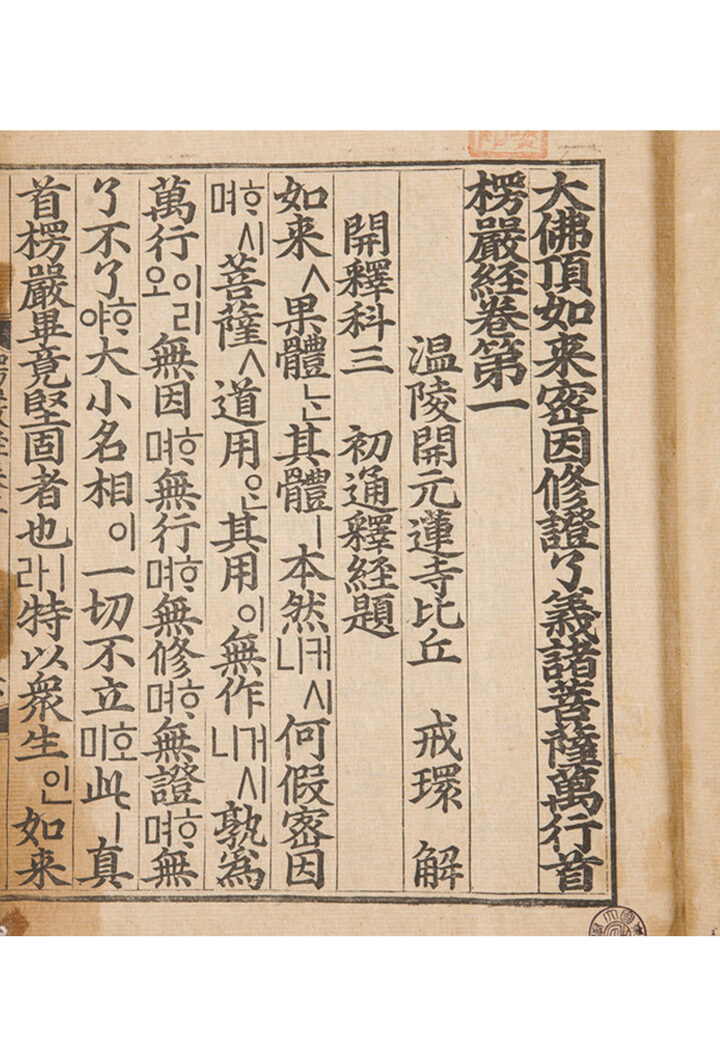 大佛頂如来密因修證了義諸菩薩萬行首
楞嚴經卷第一
温陵開元蓮寺比丘 戒環 解
開釋科三 初通釋經題
如来ㅅ果體ᄂᆞᆫ其體ㅣ本然커시니何假密因
ᄒᆞ시며菩薩ㅅ道用ᄋᆞᆫ其用이無作거시니孰為
萬行이리오無因ᄒᆞ며無行ᄒᆞ며無修ᄒᆞ며無證ᄒᆞ며無
了不了ᄒᆞ야大小名相이一切不立호미此ㅣ真
首楞嚴畢竟堅固者也ㅣ라特以衆生인如来